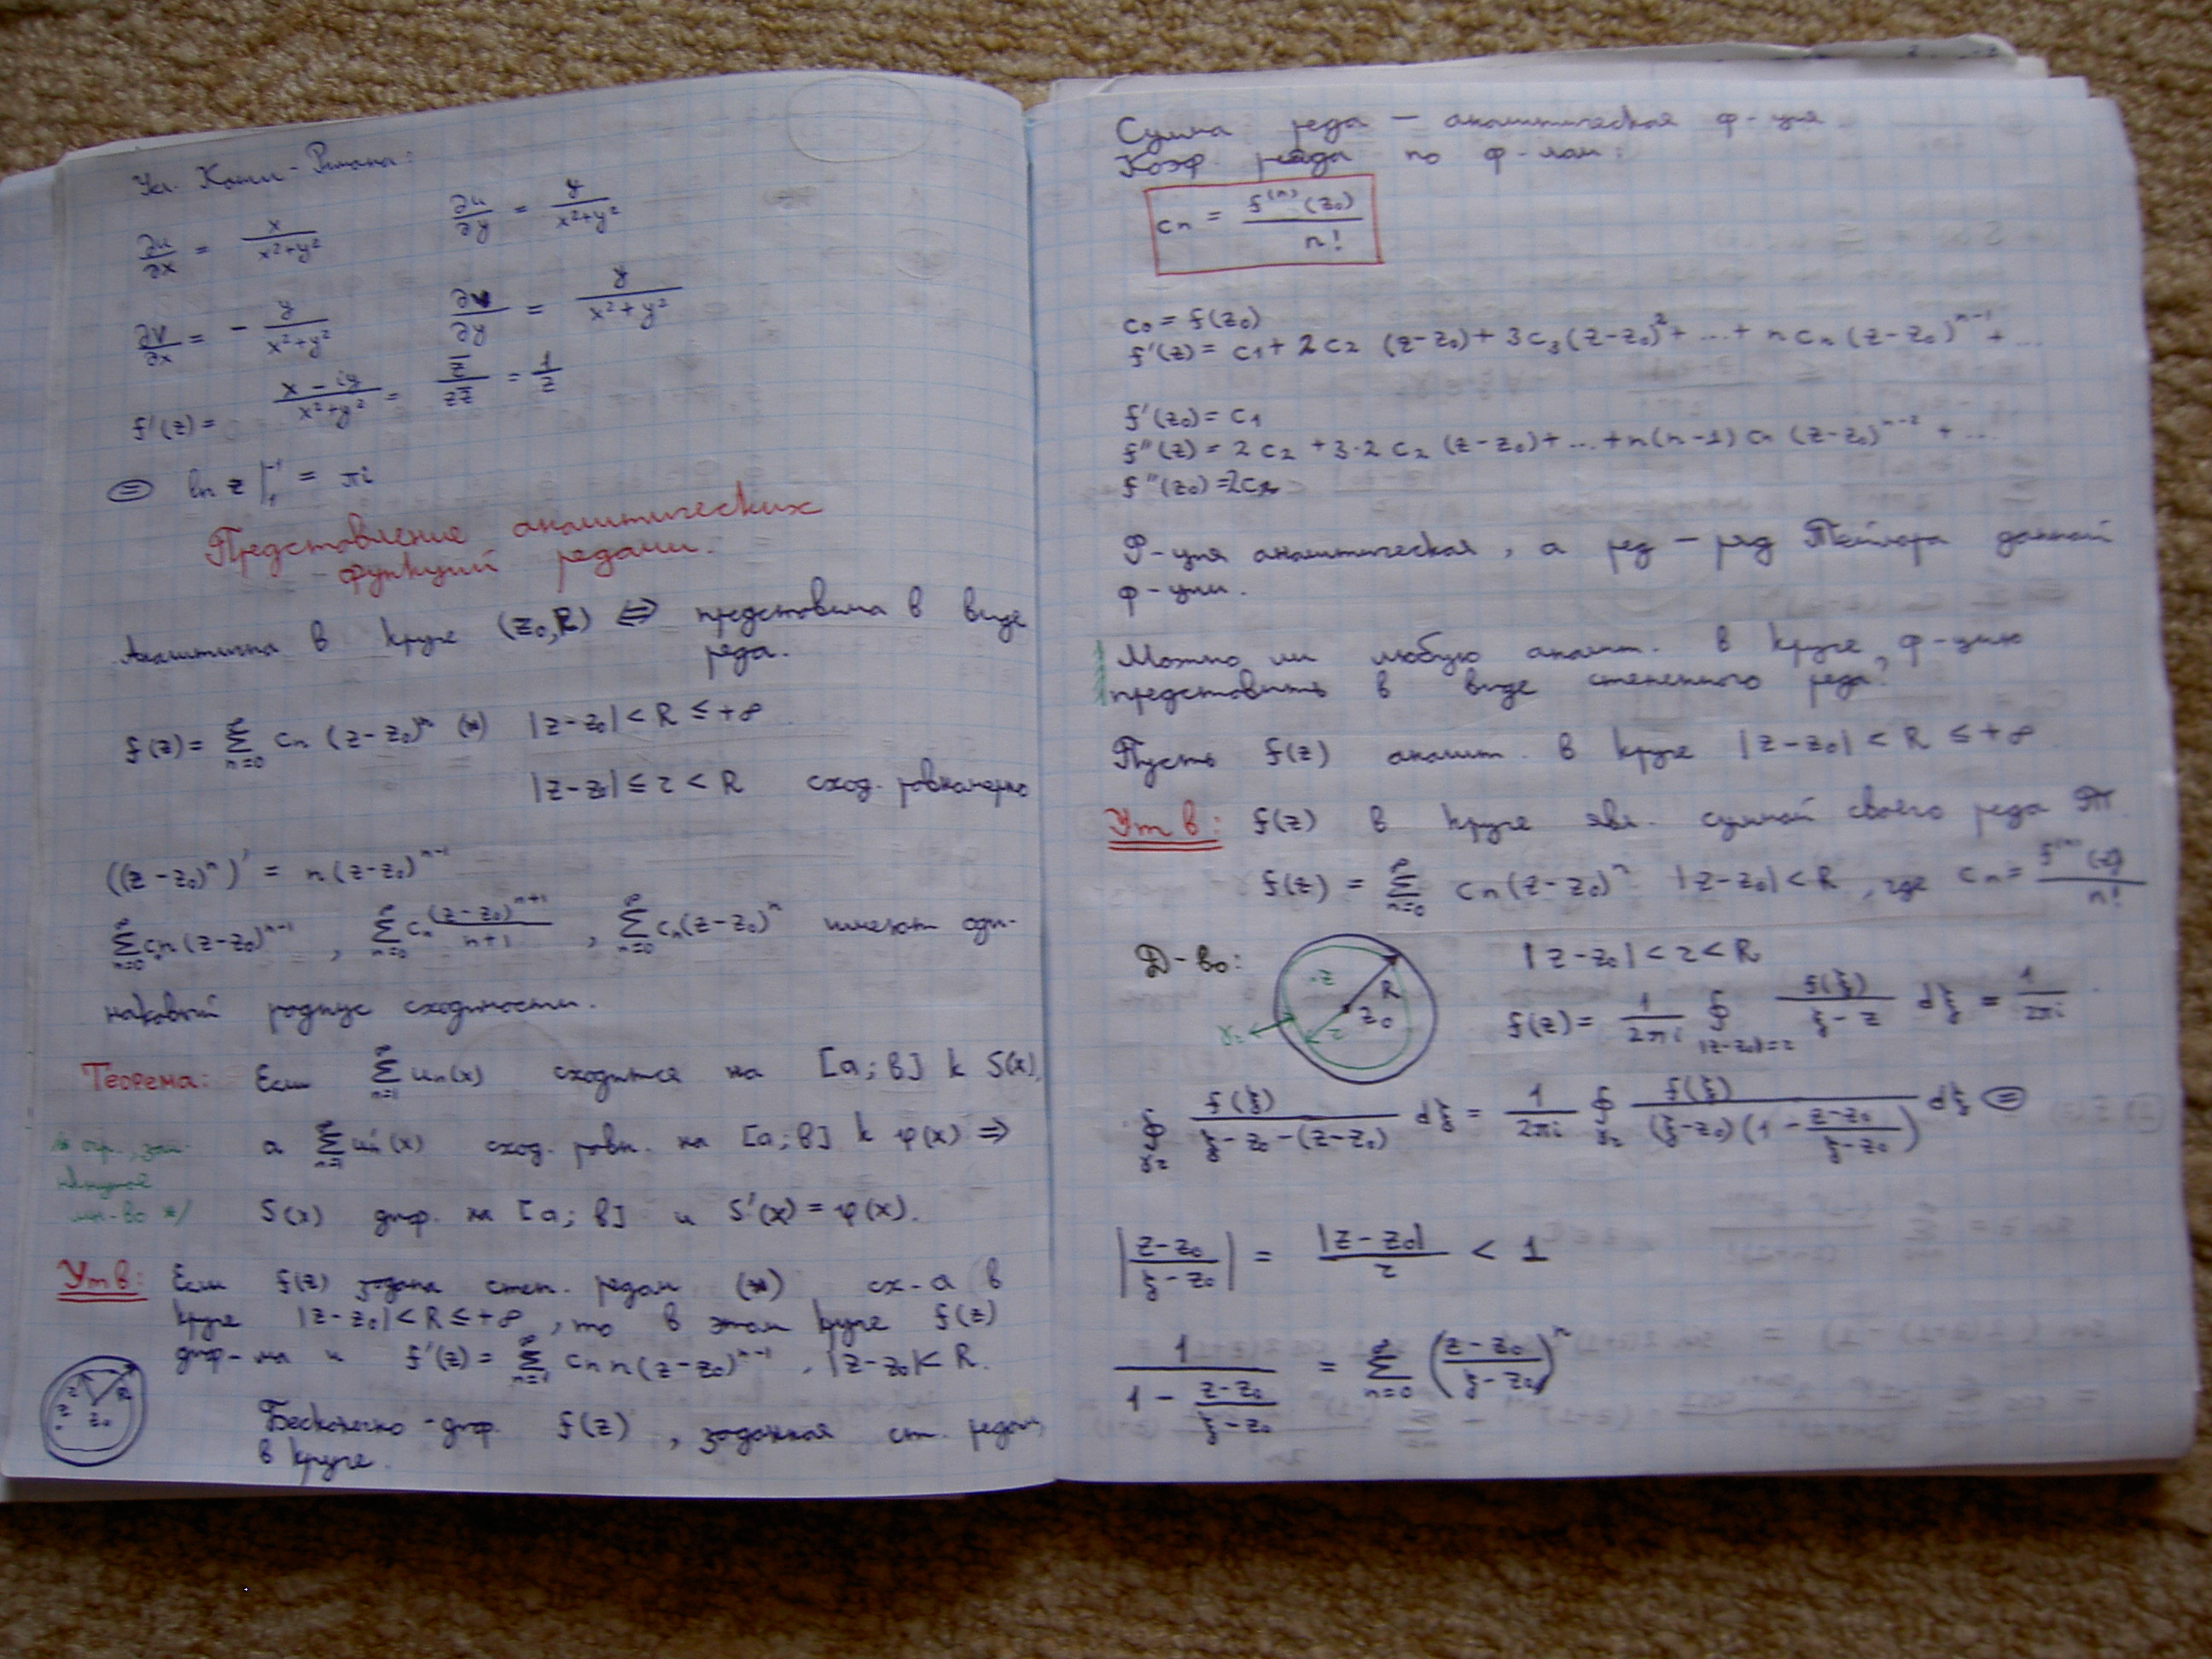 Усл. Коши-Римана:
∂u/∂x = x/(x²+y²)   ∂u/∂y = y/(x²+y²)
∂v/∂x = - y/(x²+y²)   ∂v/∂y = y/(x²+y²)
f'(z) = (x-iy)/(x²+y²) = z̄/(zz̄) = 1/z
⊜ ln z |₁⁻¹ = πi
Представление аналитических
функций рядами.
Аналитична в круге (z₀,R) ⇔ представима в виде
ряда.
f(z) = ∑_{n=0}^∞ cn (z-z₀)ⁿ (*)   |z-z₀| < R ≤ +∞
|z-z₀| ≤ r < R   сход. равномерно
((z-z₀)ⁿ)' = n(z-z₀)ⁿ⁻¹
∑_{n=0}^∞ cn(z-z₀)ⁿ⁻¹ , ∑_{n=0}^∞ cn (z-z₀)ⁿ⁺¹/(n+1) , ∑_{n=0}^∞ cn(z-z₀)ⁿ имеют оди-
наковый радиус сходимости.
Теорема: Если ∑_{n=1}^∞ un(x) сходится на [a;b] к S(x),
а ∑_{n=1}^∞ un'(x) сход. равн. на [a;b] к φ(x) ⇒
огр., зам-
кнутой
мн-во */
S(x) диф. на [a;b] и S'(x) = φ(x).
Утв: Если f(z) задана степ. рядом (*) сх-а в
круге |z-z₀| < R ≤ +∞, то в этом круге f(z)
диф-ма и f'(z) = ∑_{n=1}^∞ cn n(z-z₀)ⁿ⁻¹, |z-z₀| < R.
r R
z z₀
Бесконечно-диф. f(z), заданная ст. рядом,
в круге.
Сумма ряда — аналитическая ф-ция.
Коэф ряда по ф-лам:
cn = f⁽ⁿ⁾(z₀)/n!
c₀ = f(z₀)
f'(z) = c₁ + 2c₂ (z-z₀) + 3c₃(z-z₀)² + ... + ncn (z-z₀)ⁿ⁻¹ + ...
f'(z₀) = c₁
f''(z) = 2c₂ + 3·2c₂ (z-z₀) + ... + n(n-1)cn (z-z₀)ⁿ⁻² + ...
f''(z₀) = 2c₂
Ф-ция аналитическая, а ряд — ряд Тейлора данной
ф-ции.
Можно ли любую аналит. в круге ф-цию
представить в виде степенного ряда?
Пусть f(z) аналит. в круге |z-z₀| < R ≤ +∞
Утв: f(z) в круге явл. суммой своего ряда Т.
f(z) = ∑_{n=0}^∞ cn(z-z₀)ⁿ   |z-z₀| < R, где cn = f⁽ⁿ⁾(z₀)/n!
Д-во:   |z-z₀| < r < R
z R z₀ r γr
f(z) = 1/(2πi) ∮_{|z-z₀|=r} f(ξ)/(ξ-z) dξ = 1/(2πi)
∮_{γr} f(ξ)/(ξ-z₀-(z-z₀)) dξ = 1/(2πi) ∮_{γr} f(ξ)/((ξ-z₀)(1 - (z-z₀)/(ξ-z₀))) dξ ⊜
|(z-z₀)/(ξ-z₀)| = |z-z₀|/r < 1
1/(1 - (z-z₀)/(ξ-z₀)) = ∑_{n=0}^∞ ((z-z₀)/(ξ-z₀))ⁿ